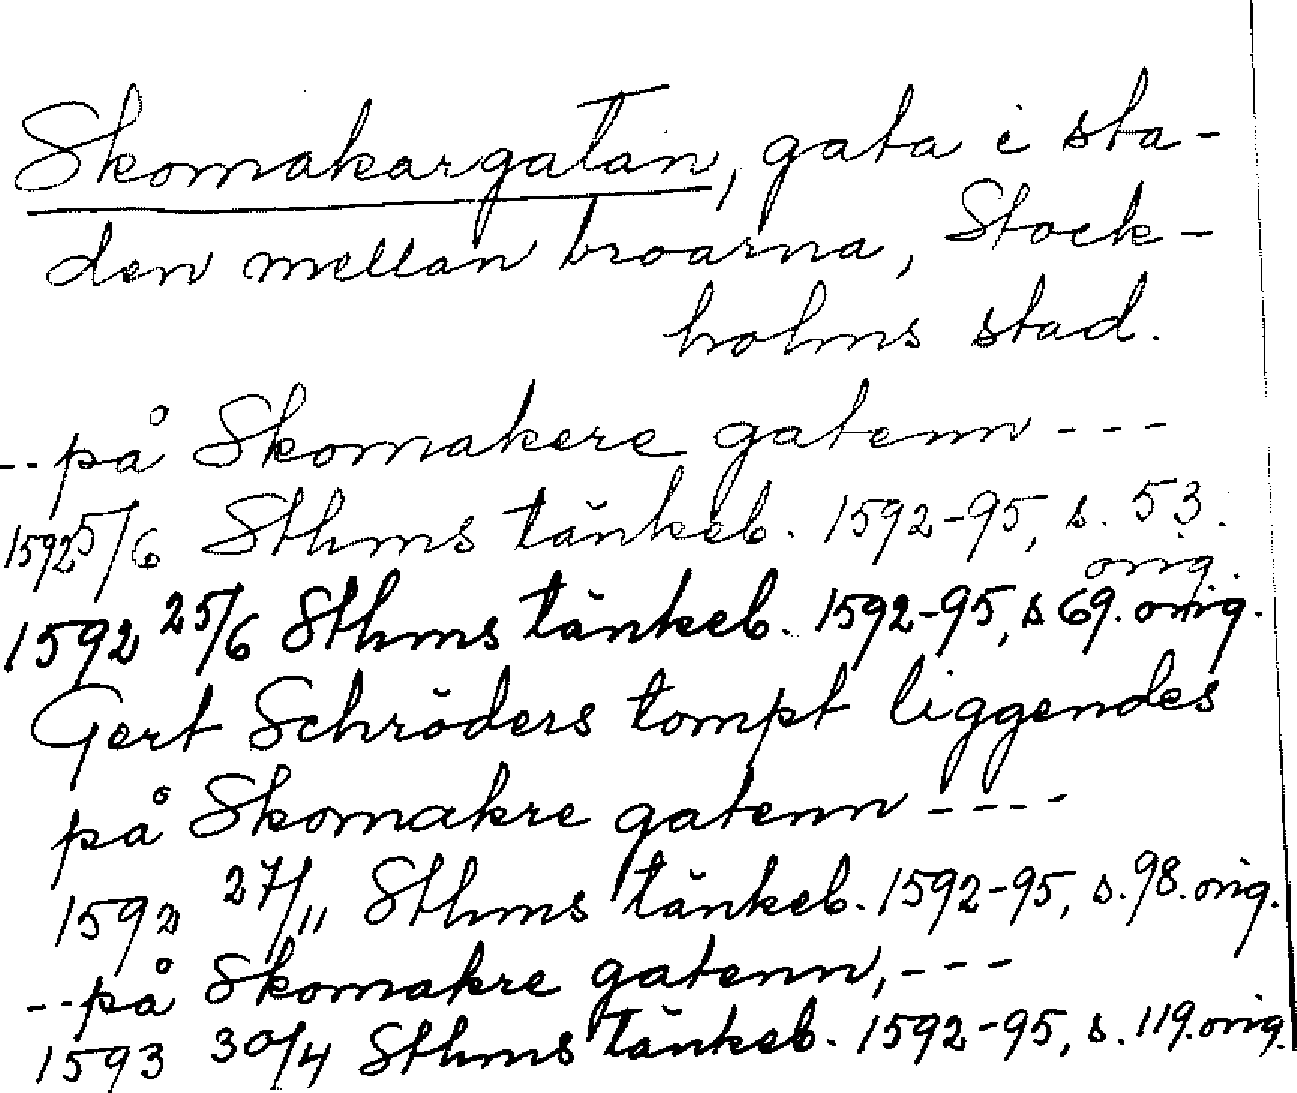 Skomakargatan, gata i sta-
den mellan broarna, Stock-
holms stad.
-- på Skomakere gatenn ---
1592 5/6 Sthms tänkeb. 1592-95, s. 53.
orig.
1592 25/6 Sthms tänkeb. 1592-95, s 69. orig.
Gert Schröders tompt liggendes
på Skomakre gatenn ----
1592 27/11 Sthms tänkeb. 1592-95, s. 98. orig.
-- på Skomakre gatenn, ---
1593 30/4 Sthms tänkeb. 1592-95, s. 119. orig.